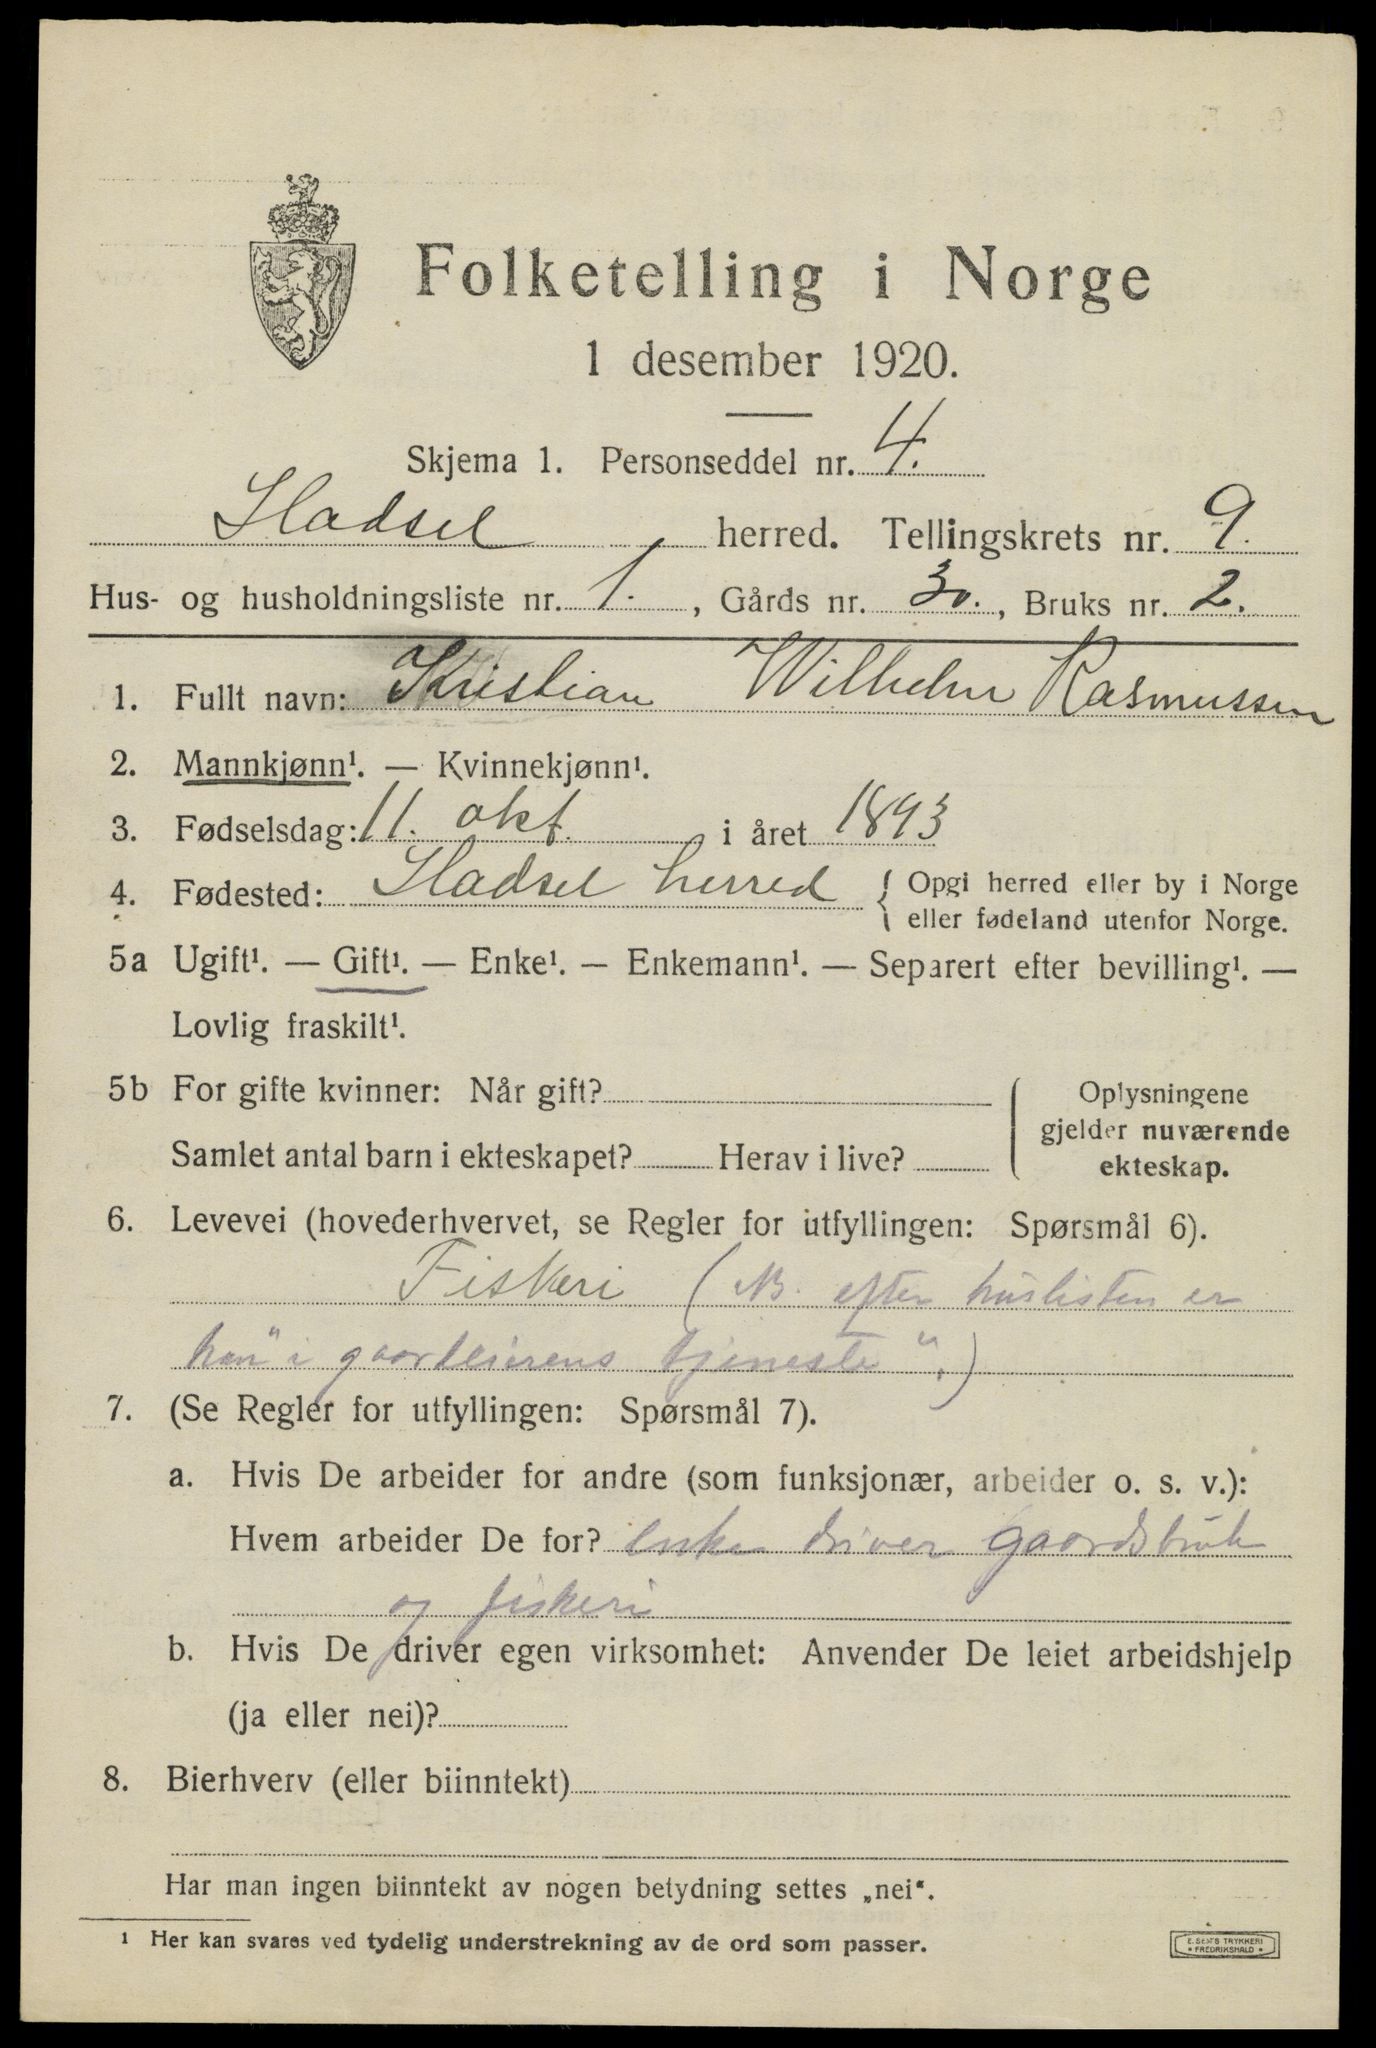 Folketelling i Norge
1 desember 1920.
Skjema 1. Personseddel nr. 4.
Hadsel herred. Tellingskrets nr. 9.
Hus- og husholdningsliste nr. 1., Gårds nr. 30., Bruks nr. 2.
1. Fullt navn: Kristian Wilhelm Rasmussen
2. Mannkjønn¹. — Kvinnekjønn¹.
3. Fødselsdag: 11. okt. i året 1893
4. Fødested: Hadsel herred { Opgi herred eller by i Norge
eller fødeland utenfor Norge.
5a Ugift¹. — Gift¹. — Enke¹. — Enkemann¹. — Separert efter bevilling¹. —
Lovlig fraskilt¹.
5b For gifte kvinner: Når gift? ( Oplysningene
gjelder nuværende
Samlet antal barn i ekteskapet? Herav i live? ekteskap.
6. Levevei (hovederhvervet, se Regler for utfyllingen: Spørsmål 6).
Fiskeri (NB. efter huslisten er
han "i gaardeierens tjeneste".)
7. (Se Regler for utfyllingen: Spørsmål 7).
a. Hvis De arbeider for andre (som funksjonær, arbeider o. s. v.):
Hvem arbeider De for? enke driver gaardsbruk
og fiskeri
b. Hvis De driver egen virksomhet: Anvender De leiet arbeidshjelp
(ja eller nei)?
8. Bierhverv (eller biinntekt)
Har man ingen biinntekt av nogen betydning settes „nei“.
1 Her kan svares ved tydelig understrekning av de ord som passer.
E. SEMS TRYKKERI
• FREDRIKSHALD •